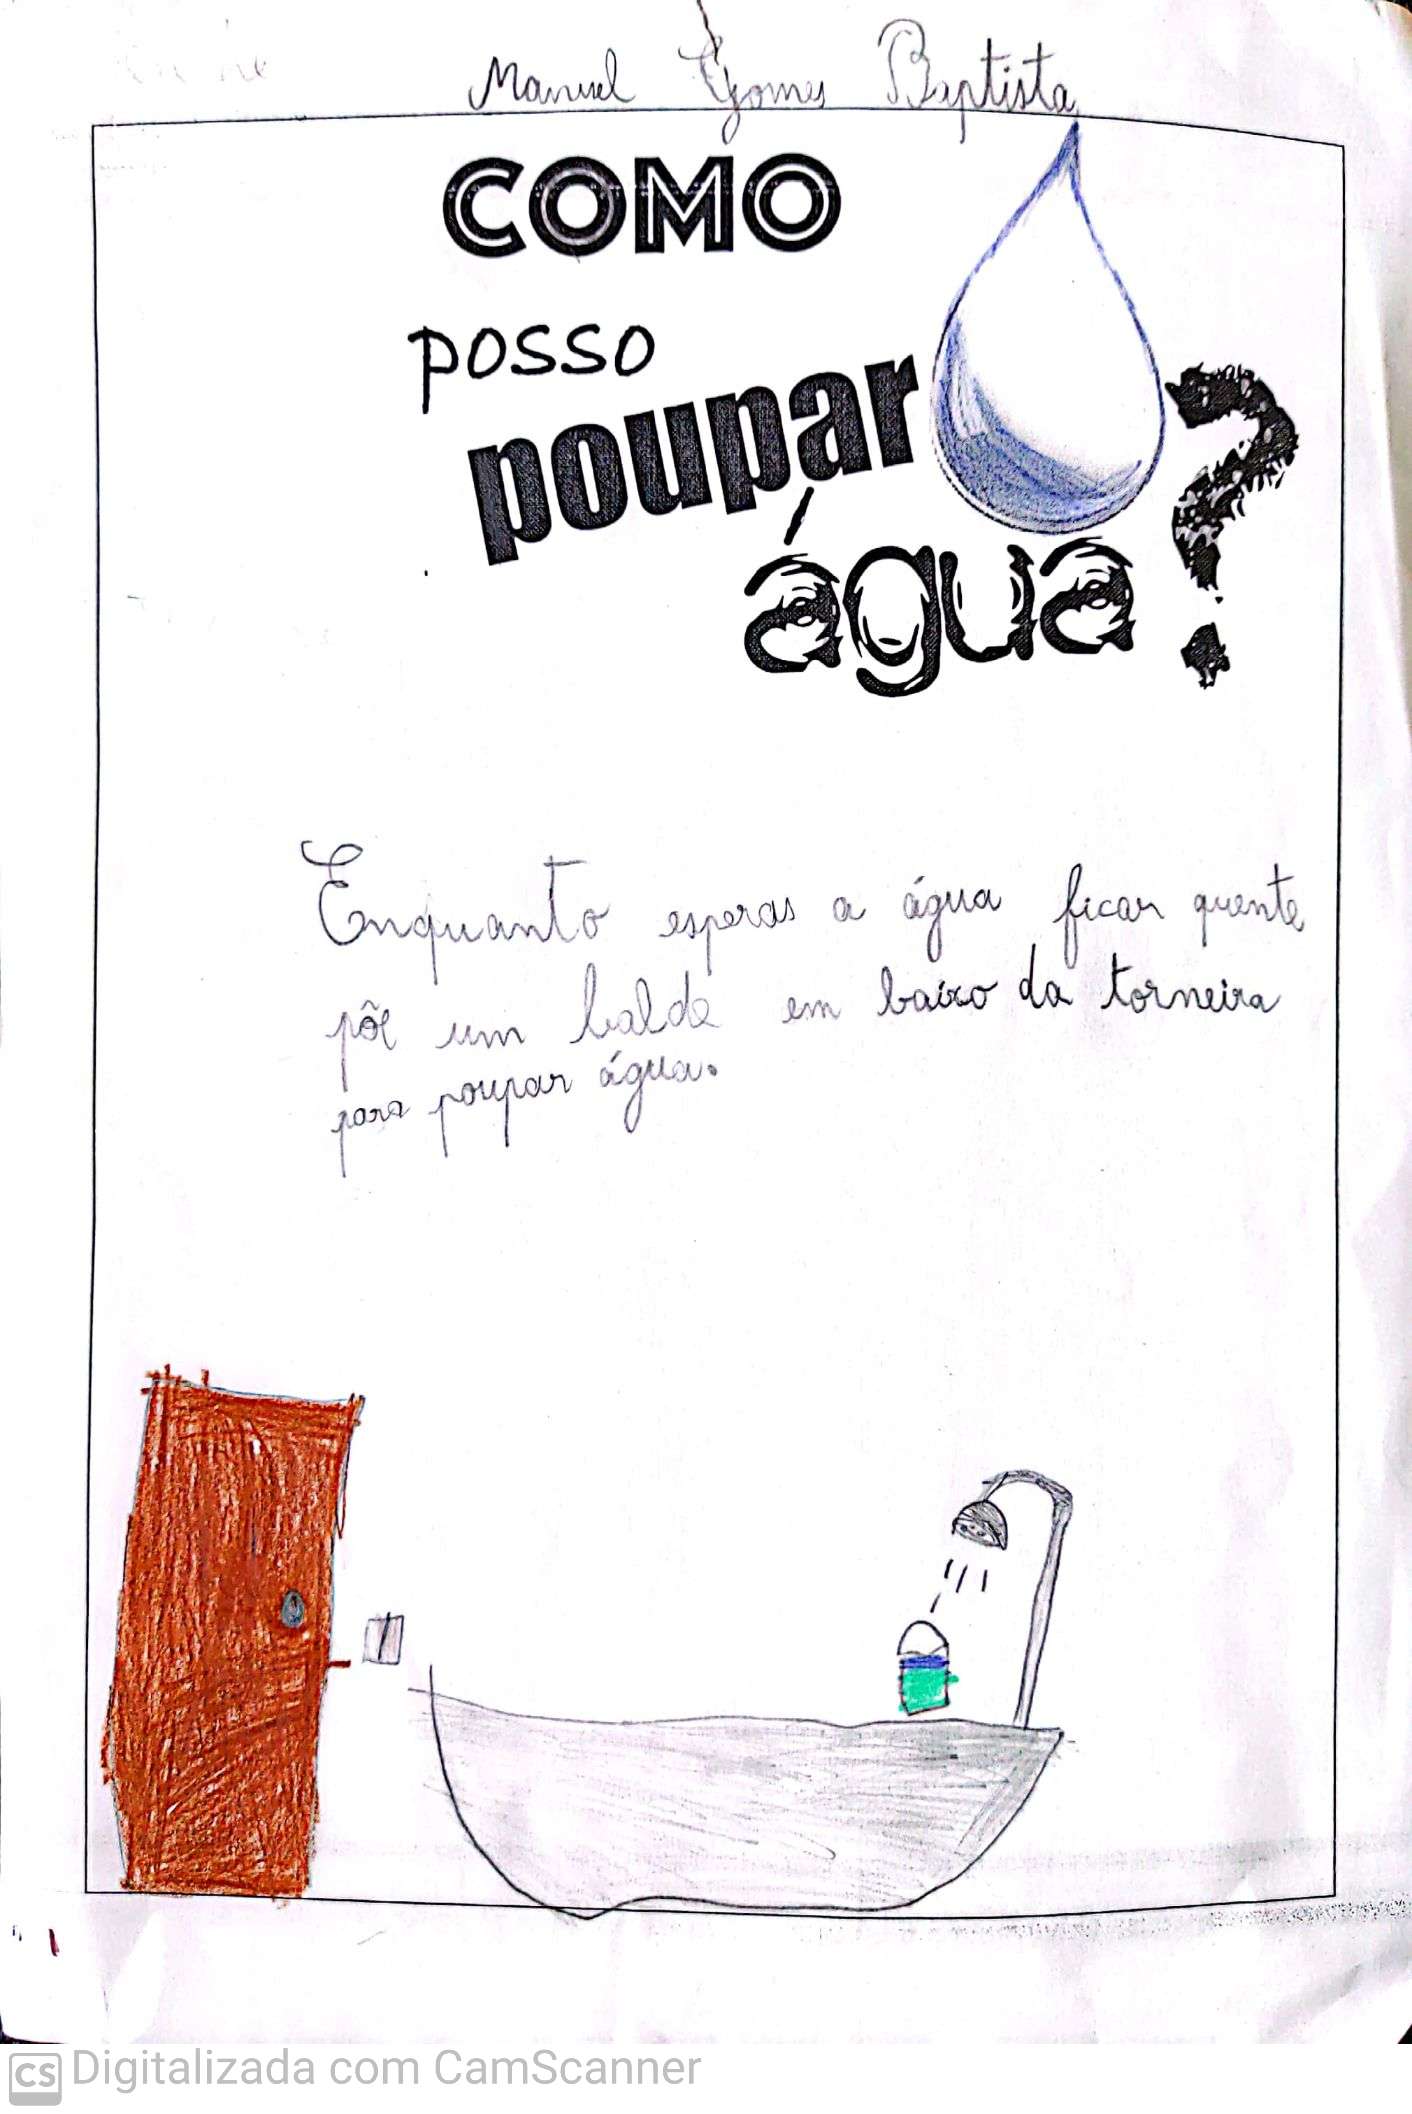 Manuel Gomes Baptista
COMO
posso
poupar
água?
Enquanto esperas a água ficar quente
põe um balde em baixo da torneira
para poupar água.
CS Digitalizada com CamScanner